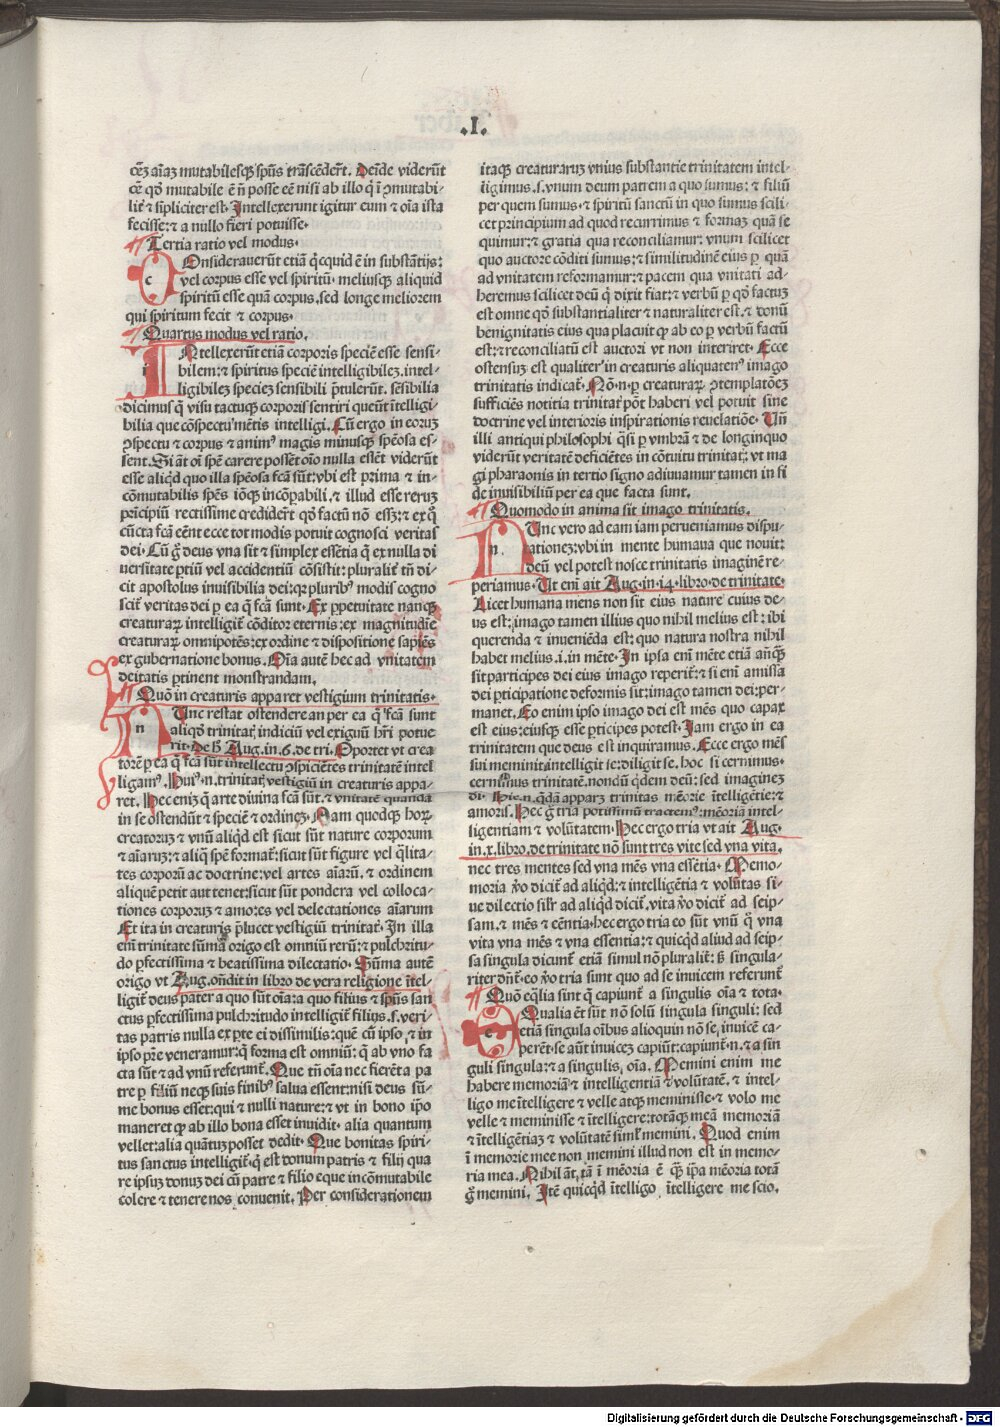 .I.
cēꝫ aīaꝫ mutabilesqꝫ spūs trāscēdert̄. Deīde viderūt
cē qd̄ mutabile ē nō posse eē nisi ab illo q̄ īꝯmutabi-
lit̄ ⁊ sīpliciter est. Intellexerunt igitur eum ⁊ oīa ista
fecisse: ⁊ a nullo fieri potuisse.
Tertia ratio vel modus.
COnsiderauerūt etiā qͥcquid ē in substātijs:
vel corpus esse vel spiritū. meliusqꝫ aliquid
spiritū esse quā corpus, sed longe meliorem
qui spiritum fecit ⁊ corpus.
Quartus modus vel ratio.
INtellexerūt etiā corporis speciē esse sensi-
bilem: ⁊ spiritus speciē intelligibileꝫ. intel-
ligibileꝫ specieꝫ sensibili p̄tulerūt. sēsibilia
dicimus q̄ visu tactuqꝫ corporis sentiri queūt ītelligi
bilia que cōspectu mētis intelligi. Cū ergo in eoruꝫ
ꝯspectu ⁊ corpus ⁊ animꝰ magis minusqꝫ spēosa es-
sent. Si āt oī spē carere possēt oīo nulla essēt viderūt
esse aliqͥd quo illa spēosa fcā sūt: vbi est prima ⁊ in-
cōmutabilis spēs iōqꝫ incōpabilī, ⁊ illud esse reruꝫ
prīcipiū rectissime crediderūt qd̄ factū nō essꝫ: ⁊ ex qͦ
cūcta fcā eēnt ecce tot modis potuit cognosci veritas
dei. Cū g̊ deus vna sit ⁊ simplex essētia q̄ ex nulla di
uersitate ꝑtiū vel accidentiū cōsistit: pluralit̄ tn̄ di-
cit apostolus inuisibilia dei: qꝛ pluribꝰ modis cogno
scit̄ veritas dei ꝑ ea q̄ fcā sunt. Ex ꝑpetuitate nanqꝫ
creaturaꝝ intelligit̄ cōditor eternus: ex magnitudīe
creaturaꝝ omnipotēs: ex ordine ⁊ dispositione sapiēs
ex gubernatione bonus. Oīa autē hec ad vnitatem
deitatis ꝑtinent monstrandam.
Quō in creaturis apparet vestigium trinitatis.
NUnc restat ostendere an per ea q̄ fcā sunt
aliqd̄ trinitat̄ indiciū vel exiguū hr̄i potue
rit. de hͦ Aug. in. 6. de tri. Oportet vt crea
torē ꝑ ea q̄ fcā sūt intellectu ꝯspiciētes trinitatē intel
ligamꝰ. Huiꝰ. n. trinitat̄ vestigiū in creaturis appa-
ret. Hec eniꝫ q̄ arte diuina fcā sūt. ⁊ vnitatē quandā
in se ostendūt ⁊ speciē ⁊ ordineꝫ. Nam quodqꝫ hoꝝ
creatoruꝫ ⁊ vnū aliqͥd est sicut sūt nature corporum
⁊ aīaruꝫ: ⁊ aliqͣ spē format̄: sicut sūt figure vel qͣlita-
tes corporū ac doctrine: vel artes aīarū. ⁊ ordinem
aliquē petit aut tenet: sicut sūt pondera vel colloca-
tiones corporuꝫ ⁊ amores vel delectationes aīarum
Et ita in creaturis p̄lucet vestigiū trinitat̄. In illa
enī trinitate sūma origo est omniū rerū: ⁊ pulchritu-
do ꝑfectissima ⁊ beatissima dilectatio. Sūma autē
origo vt Aug. oñdit in libro de vera religione ītel-
ligit̄ deus pater a quo sūt oīa: a quo filius ⁊ spūs san
ctus ꝑfectissima pulchritudo intelligit̄ filius. s. veri-
tas patris nulla ex ꝑte ei dissimilis: quē cū ipso, ⁊ in
ipso pr̄e veneramur: q̄ forma est omniū: q̄ ab vno fa
cta sūt ⁊ ad vnū referunt̄. Que tn̄ oīa nec fierēt a pa
tre ꝑ filiū neqꝫ suis finibꝰ salua essent: nisi deus sū-
me bonus esset: qui ⁊ nulli nature: ⁊ vt in bono ip̄o
maneret qͣ ab illo bona esset inuidit. alia quantum
vellet: alia quātuꝫ posset dedit. Que bonitas spiri-
tus sanctus intelligit̄. q̄ est donum patris ⁊ filij qua
re ipsuꝫ donuꝫ dei cū patre ⁊ filio eque incōmutabile
colere ⁊ tenere nos, conuenit. Per considerationem
itaqꝫ creaturaruꝫ vnius substantie trinitatem intel-
ligimus. s. vnum deum patrem a quo sumus: ⁊ filiū
per quem sumus. ⁊ spiritū sanctū in quo sumus scili
cet principium ad quod recurrimus ⁊ formaꝫ quā se
quimur: ⁊ gratia qua reconciliamur: vnum scilicet
quo auctore cōditi sumus: ⁊ similitudinē eius ꝑ quā
ad vnitatem reformamur: ⁊ pacem qua vnitati ad-
heremus scilicet deū q̄ dixit fiat: ⁊ verbū ꝑ qd̄ factuꝫ
est omne qd̄ substantialiter ⁊ naturaliter est. ⁊ donū
benignitatis eius qua placuit qͣ ab eo ꝑ verbū factū
est: ⁊ reconciliatū est auctori vt non interiret. Ecce
ostensuꝫ est qualiter in creaturis aliquatenꝰ imago
trinitatis indicat̄. Nō. n. ꝑ creaturaꝝ ꝯtemplatōeꝫ
sufficiēs notitia trinitat̄ pōt haberi vel potuit sine
doctrine vel interioris inspirationis reuelatiōe. Vn̄
illi antiqui philosophi qͣsi ꝑ vmbrā ⁊ de longinquo
viderūt veritatē deficiētes in cōtuitu trinitat̄: vt ma
gi pharaonis in tertio signo adiuuamur tamen in fi
de inuisibiliū per ea que facta sunt.
Quomodo in anima sit imago trinitatis.
NUnc vero ad eam iam perueniamus dispu-
tationeꝫ: vbi in mente humana que nouit:
deū vel potest nosce trinitatis imaginē re-
periamus. Ut enī ait Aug. in. 14. libro. de trinitate.
Licet humana mens non sit eius nature cuius de-
us est: imago tamen illius quo nihil melius est: ibi
querenda ⁊ inueniēda est: quo natura nostra nihil
habet melius. i. in mēte. In ipsa enī mēte etiā an̄qꝫ
sit particeps dei eius imago reperit̄: ⁊ si enī amissa
dei ꝑticipatione deformis sit: imago tamen dei: per-
manet. Eo enim ipso imago dei est mēs quo capax
est eius: eiusqꝫ esse ꝑticipes potest. Iam ergo in ea
trinitatem que deus est inquiramus. Ecce ergo mēs
sui meminit: intelligit se: diligit se. hoc si cernimus.
cernimus trinitatē. nondū qͥdem deū: sed imagineꝫ
di. Hic. n. qͥdā apparꝫ trinitas mēorie ītelligētie: ⁊
amoris. Hec g̊ tria potissimū tractemꝰ: mēoriā intel-
ligentiam ⁊ volūtatem. Hec ergo tria vt ait Aug.
in. x. libro. de trinitate nō sunt tres vite sed vna vita.
nec tres mentes sed vna mēs vna essētia. Memo-
moria v̄o dicit̄ ad aliqͥd: ⁊ intelligētia ⁊ volūtas si-
ue dilectio silr̄ ad aliqͥd dicit̄. vita v̄o dicit̄ ad seip-
sam. ⁊ mēs ⁊ cēntia. hec ergo tria eo sūt vnū qͦ vna
vita vna mēs ⁊ vna essentia: ⁊ quicqͥd aliud ad seip-
sa singula dicunt̄ etiā simul nō pluralit̄: sꝫ singula-
riter dn̄t̄. eo v̄o tria sunt quo ad se inuicem referunt̄
Quō eqͣlia sint q̄ capiunt̄ a singulis oīa ⁊ tota.
EQualia ēt sūt nō solū singula singulī: sed
etiā singula oībus alioquin nō se, inuicē ca-
perēt. se aūt inuiceꝫ capiūt: capiunt̄. n. ⁊ a sin
guli singula: ⁊ a singulis, oīa. Memini enim me
habere memoriā ⁊ intelligentiā ⁊ volūtatē. ⁊ intel-
ligo me ītelligere ⁊ velle atqꝫ meminisse. ⁊ volo me
velle ⁊ meminisse ⁊ ītelligere: totāqꝫ meā memoriā
⁊ ītelligētiaꝫ ⁊ volūtatē siml̄ memini. Quod enim
ī memorie mee non memini illud non est in memo-
ria mea. Nihil āt, tā ī mēoria ē qͣꝫ ip̄a mēoria totā
g̊ memini. Itē quicqͥd ītelligo ītelligere me scio.
Digitalisierung gefördert durch die Deutsche Forschungsgemeinschaft - DFG